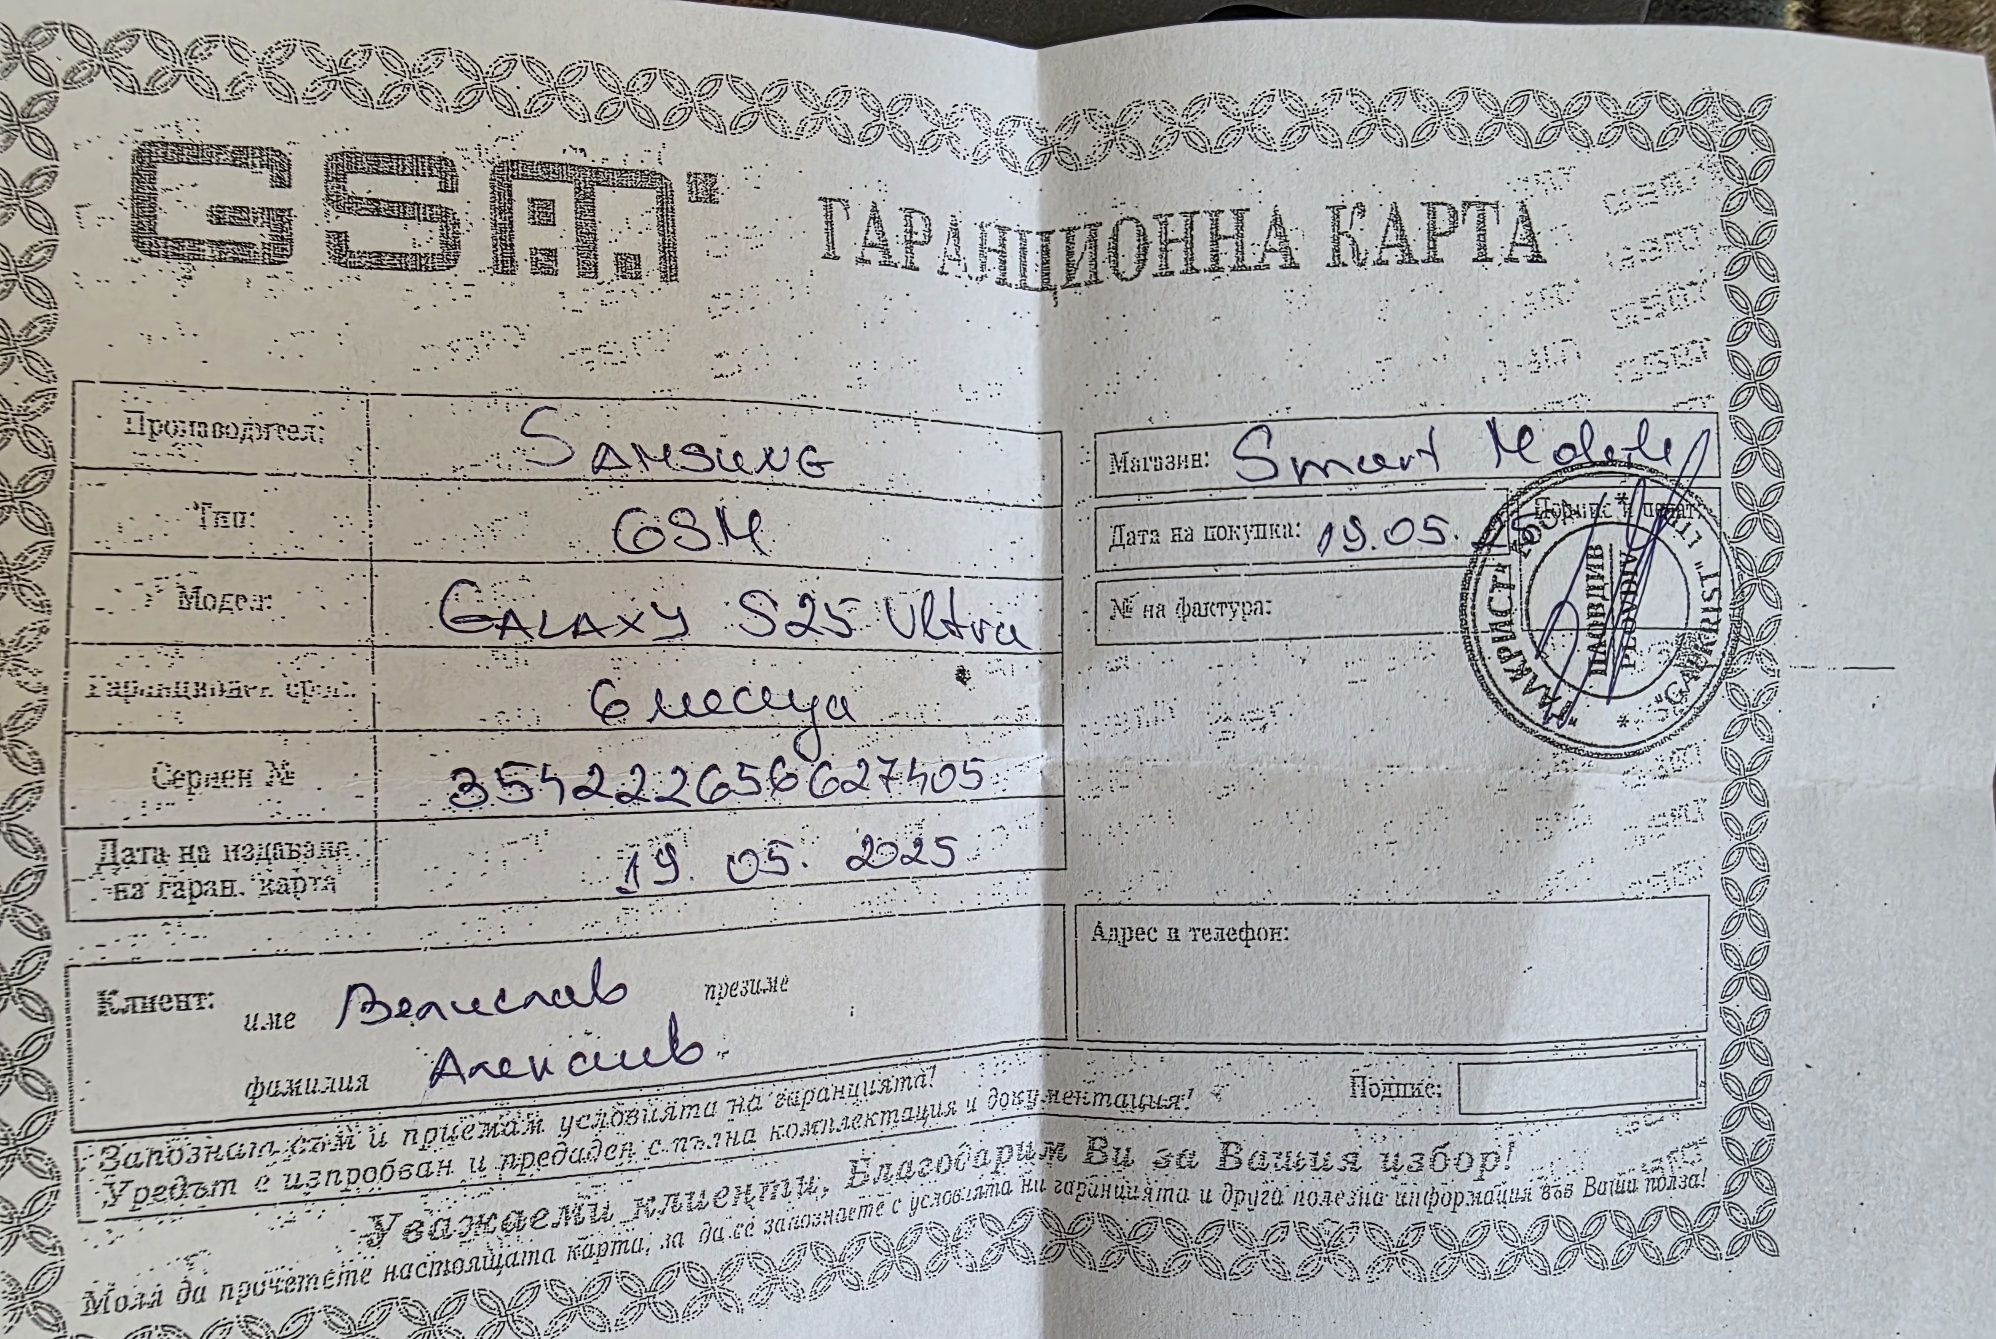 GSM
ГАРАНЦИОННА КАРТА
Производител: SAMSUNG
Тип: GSM
Модел: GALAXY S25 Ultra
Гаранционен срок: 6 месеца
Сериен № 354222656627405
Дата на издаване на гаран. карта 19. 05. 2025
Магазин: Smart Mobile
Дата на покупка: 19.05. 25
Подпис и печат
№ на фактура:
"ГАЛАКРИСТ" ЕООД
"GALAKRIST" LTD
ПЛОВДИВ
PLOVDIV
Клиент: име Велислав презиме
фамилия Алексиев
Адрес и телефон:
Подпис:
Запознат съм и приемам условията на гаранцията!
Уредът е изпробван и предаден с пълна комплектация и документация!
Уважаеми клиенти, Благодарим Ви за Вашия избор!
Моля да прочетете настоящата карта, за да се запознаете с условията на гаранцията и друга полезна информация във Ваша полза!